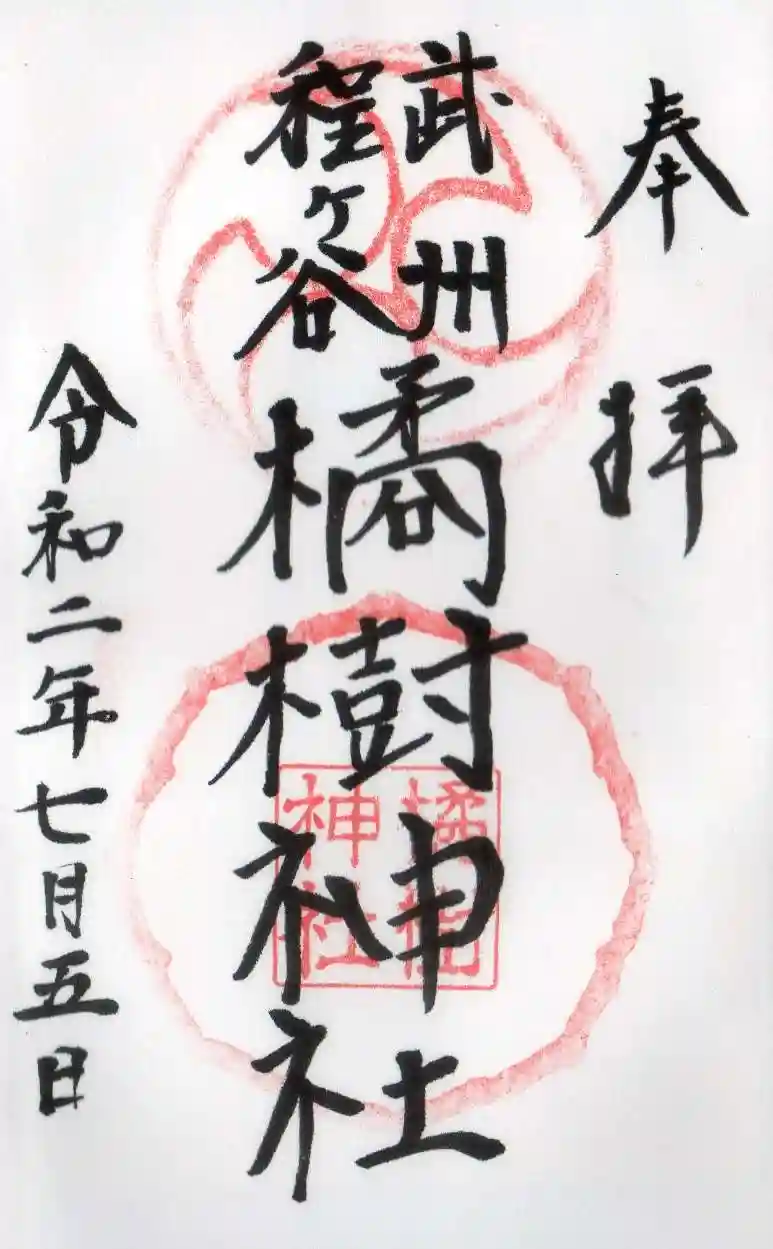 奉拝
武州
程ヶ谷
橘樹神社
橘樹
神社
令和二年七月五日